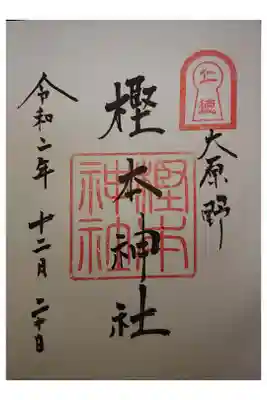 仁徳
大原野
樫本神社
樫本
神社
令和二年 十二月 二十日